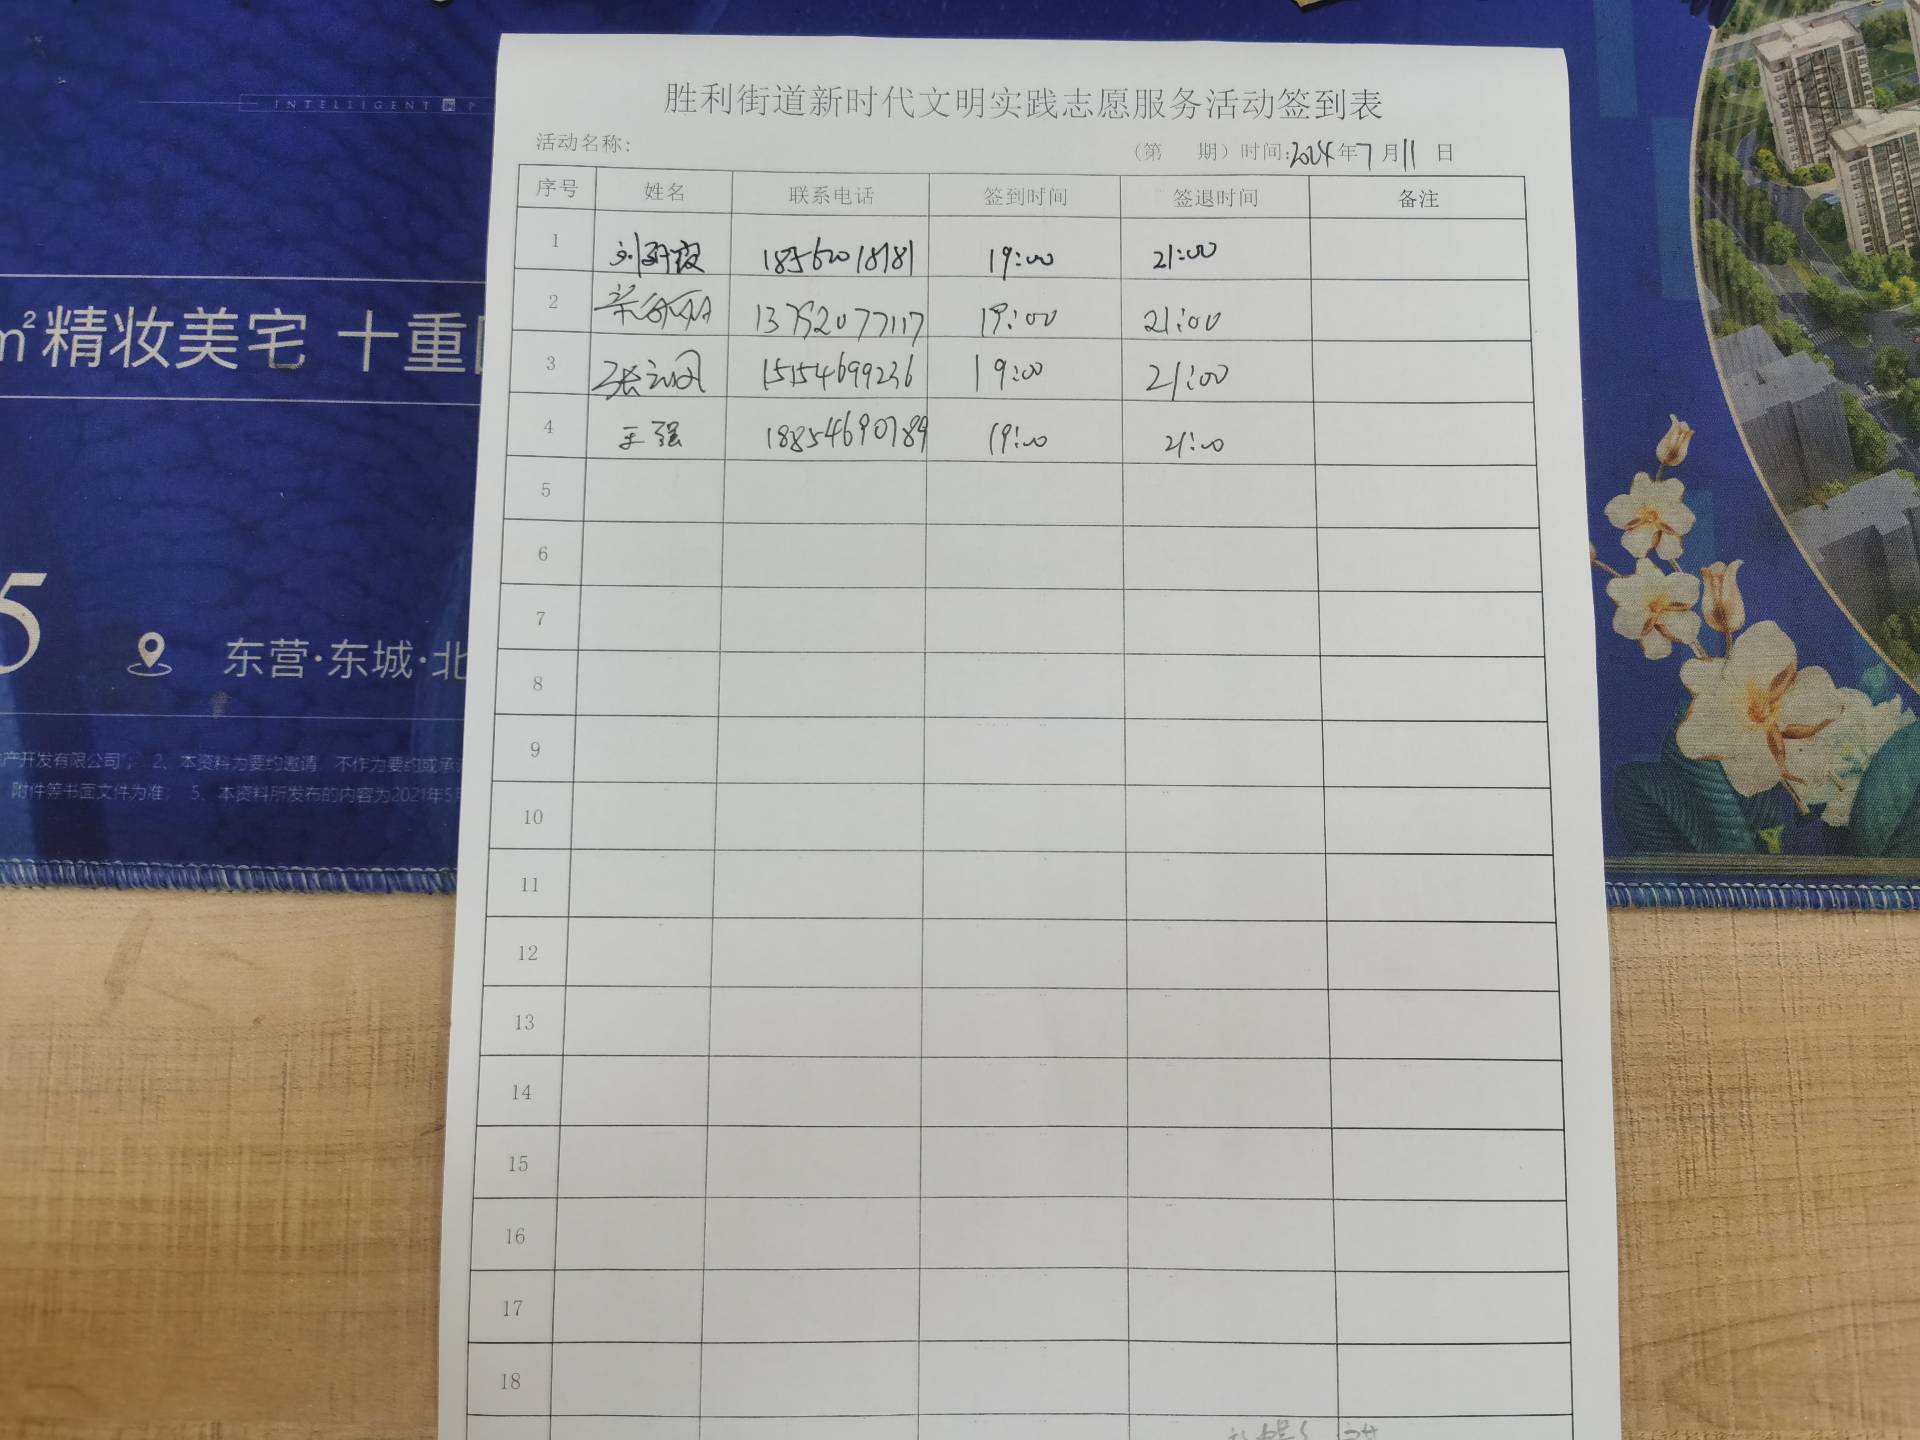 INTELLIGENT
m²精妆美宅 十重
5
东营·东城·北
产开发有限公司"; 2、本资料为要约邀请 不作为要约或承
附件等书面文件为准; 5、本资料所发布的内容为2021年5月
胜利街道新时代文明实践志愿服务活动签到表
活动名称: (第 期) 时间:2024年7月11日
序号 姓名 联系电话 签到时间 签退时间 备注
1 刘 18562018181 19:00 21:00
2 13792077117 19:00 21:00
3 张 15154699236 19:00 21:00
4 王强 18854690789 19:00 21:00
5
6
7
8
9
10
11
12
13
14
15
16
17
18